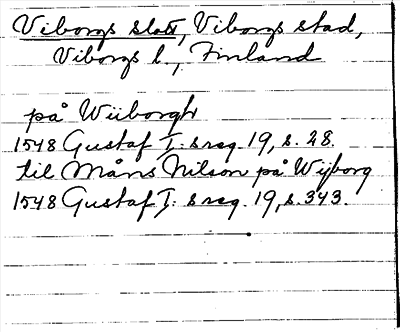 Viborgs slott, Viborgs stad,
Viborgs l., Finland
på Wiiborgh
1548 Gustaf I: s reg. 19, s. 28.
til Måns Nilson på Wijborg
1548 Gustaf I: s reg. 19, s. 343.